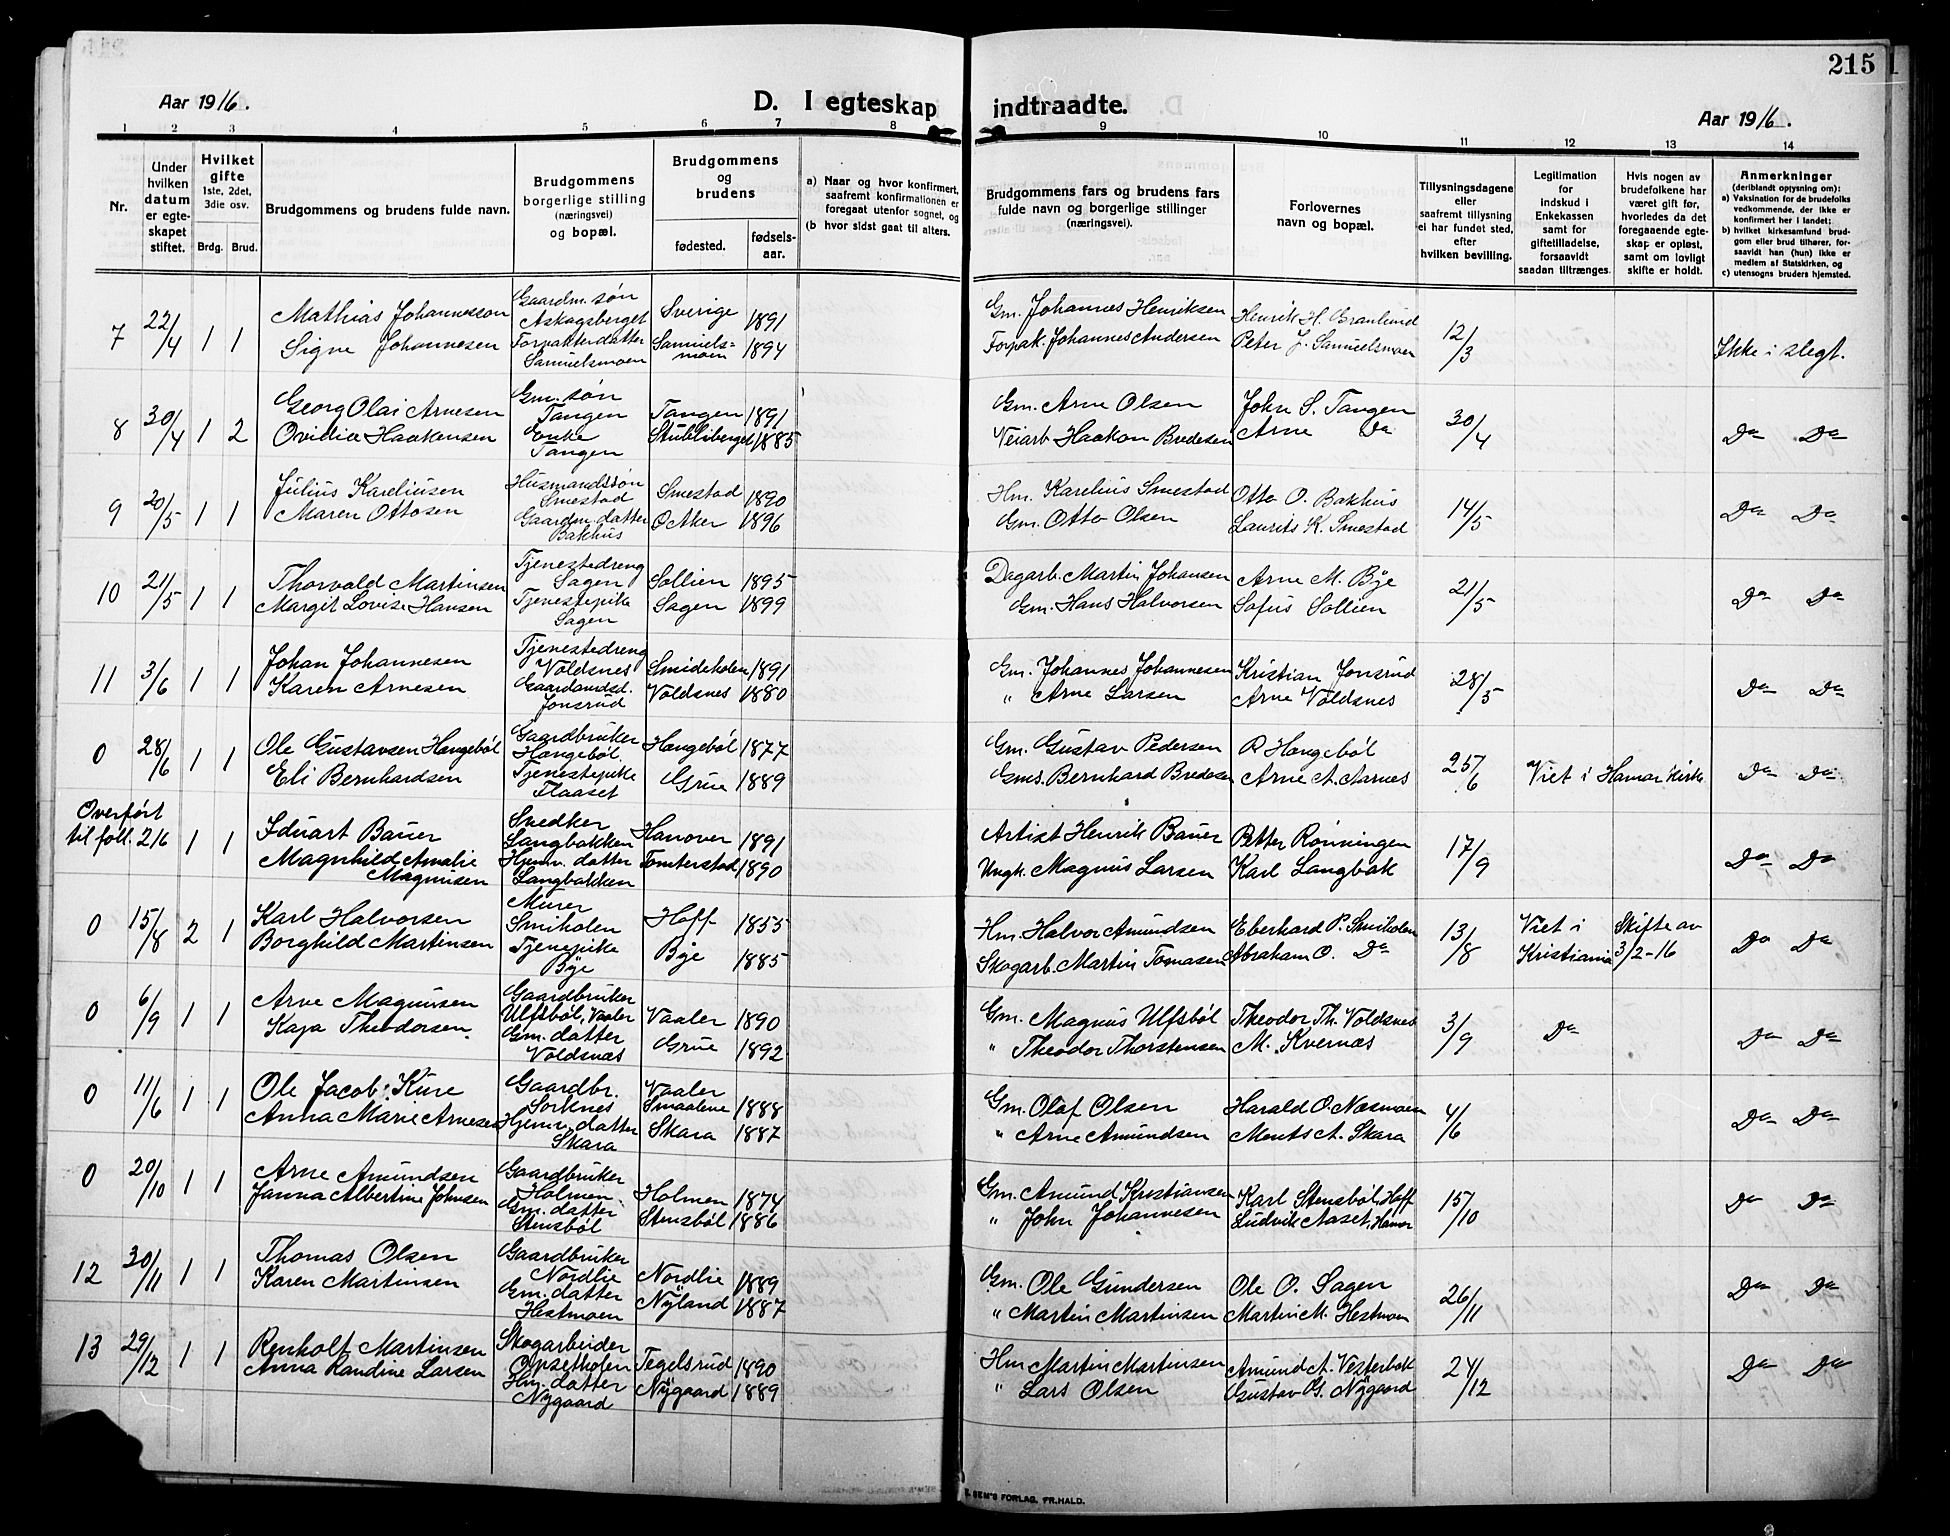 215
Aar 1916.
D. I egteskap indtraadte.
Aar 1916.
1 2 3 4 5 6 7 8 9 10 11 12 13 14
Nr.
Under hvilken datum er egteskapet stiftet.
Hvilket gifte 1ste, 2det, 3die osv.
Brdg. Brud.
Brudgommens og brudens fulde navn.
Brudgommens borgerlige stilling (næringsvei) og bopæl.
Brudgommens og brudens
fødested.
fødselsaar.
a) Naar og hvor konfirmert, saafremt konfirmationen er foregaat utenfor sognet, og
(b hvor sidst gaat til alters.
Brudgommens fars og brudens fars fulde navn og borgerlige stillinger (næringsvei).
Forlovernes navn og bopæl.
Tillysningsdagene eller saafremt tillysning ei har fundet sted, efter hvilken bevilling.
Legitimation for indskud i Enkekassen samt for giftetilladelse, forsaavidt saadan tiltrænges.
Hvis nogen av brudefolkene har været gift før, hvorledes da det foregaaende egteskap er opløst, samt om lovligt skifte er holdt.
Anmerkninger (deriblandt oplysning om):
a) Vaksination for de brudefolks vedkommende, der ikke er konfirmert her i landet;
b) hvilket kirkesamfund brudgom eller brud tilhører, forsaavidt han (hun) ikke er medlem af Statskirken, og
c) utensogns bruders hjemsted.
7 22/4 1 1 Mathias Johannesson Gaardm. søn Askogsberget Sverige 1891 Gm. Johannes Henriksen Henrik H. Granlund 12/3
Signe Johannesen Forpakterdatter Samuelsmoen Samuelsmoen 1894 Forpak. Johannes Andersen Peter J. Samuelsmoen Ikke i slegt.
8 30/4 1 2 Georg Olai Arnesen Gm. søn Tangen Tangen 1891 Gm. Arne Olsen John S. Tangen 30/4
Ovidia Haakensen Enke Tangen Stubliberget 1885 Veiarb Haakon Bredesen Arne Do Do Do
9 20/5 1 1 Julius Kareliusen Husmandssøn Smestad Smestad 1890 Hm. Karelius Smestad Otto O. Bakhus 14/5
Maren Ottosen Gaardm. datter Bakhus Octker 1896 Gm. Otto Olsen Laurits K. Smestad Do Do
10 21/5 1 1 Thorvald Martinsen Tjenestedreng Sagen Sollien 1895 Dagarb. Martin Johansen Arne M. Bye 21/5
Margit Lovise Hansen Tjenestepike Sagen Sagen 1899 Gm. Hans Halvorsen Sofus Sollien Do Do
11 3/6 1 1 Johan Johannesen Tjenestedreng Voldsnes Smideholen 1891 Gm. Johannes Johannesen Kristian Jonsrud 28/5
Karen Arnesen Gaardmdsd. Jonsrud Voldsnes 1880 " Arne Larsen Arne Voldsnes Do Do
0 28/6 1 1 Ole Gustavsen Hangebøl Gaardbruker Hangebøl. Hangebøl 1877 Gm. Gustav Pedersen R Hangebøl 25/6
Eli Bernhardsen Tjenestepike Flaaset Grue 1889 Gms. Bernhard Bredesen Arne A. Aarnes Viet i Hamar Kirk Do Do
Overført til foll. 216 1 1 Eduart Bauer Snedker Langbakken Hanover 1891 Artist Henrik Bauer Petter Rønningen 17/9
Magnhild Amalie Magnusen Hjemv. datter Langbakken Tomterstad 1890 Ungk. Magnus Larsen Karl Langbak Do Do
0 15/8 2 1 Karl Halvorsen Murer Smiholen Hoff 1855 Hm. Halvor Amundsen Eberhard P. Smiholen 13/8 Viet i Kristiania Skifte av 3/2-16
Borghild Martinsen Tjenepike Bye Bye 1885 Skogarb. Martin Tomasen Abraham O. Do Do Do
0 6/9 1 1 Arve Magnusen Gaardbruker Ulfsbøl, Vaaler Vaaler 1890 Gm. Magnus Ulfsbøl Theodor Th. Voldsnes 3/9 Do
Kaja Theodorsen. Gm. datter Voldsnæs Grue 1892 " Theodor Thorstensen M. Kvernæs Do Do
0 11/6 1 1 Ole Jacob Kure Gaardbr. Sorknes Vaaler Smaalene 1888 Gm. Olaf Olsen Harald O. Næsmoen 4/6
Anna Marie Arnesen Hjemv. datter Skara Skara 1887 " Arne Amundsen Ments A. Skara Do Do
0 20/10 1 1 Arne Amundsen Gaardbruker Holmen. Holmen 1874 Gm. Amund Kristiansen Karl Stensbøl, Hoff 15/10
Janna Albertine Johnsen Gm. datter Stensbøl Stensbøl 1886 " John Johannesen Ludvik Aaset, Hamar Do Do
12 30/11 1 1 Thomas Olsen Gaardbruker Nordlie Nordlie 1889 Gm. Ole Gundersen Ole O. Sagen 26/11
Karen Martinsen Gm. datter Hestmoen Nyland 1887 " Martin Martinsen Martin M. Hestmoen Do Do
13 29/12 1 1 Renholt Martinsen Skogarbeider Opsetholen Tegelsrud 1890 Hm Martin Martinsen Amund A. Vesterbak 24/12
Anna Randine Larsen Hm. datter Nygaard Nygaard 1889 " Lars Olsen Gustav G. Nygaard Do Do
SEM'S FORLAG, FR.HALD.